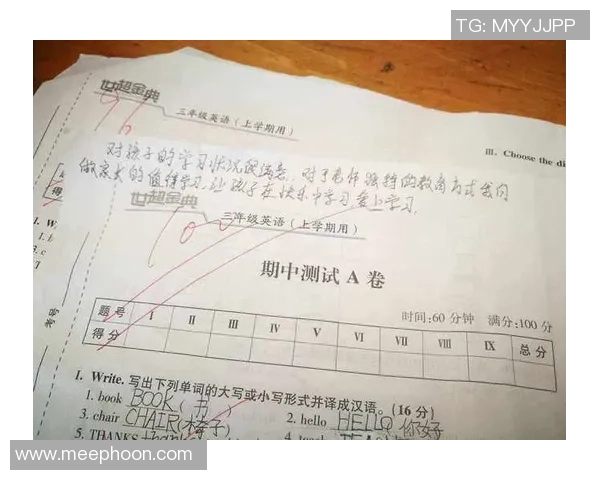 TG: MYYJJPP
世超金典
96
三年级英语(上学期用)
III. Choose the di
对孩子的学习状况很满意,对于老师独特的教育方式我们
做家长的值得学习,让孩子在快乐中学习,爱上学习.
世超金典
三年级英语(上学期用)
100
期中测试 A 卷
时间:60 分钟 满分:100 分
题号 I II III IV V VI VII VIII IX 总分
得分
考号:
得
I. W
1. b
3. c
I. Write. 写出下列单词的大写或小写形式并译成汉语。(16 分)
1. book BOOK(书)
2. hello HELLO 你好
3. chair CHAIR(椅子)
5. THANKS thank
www.meephoon.com